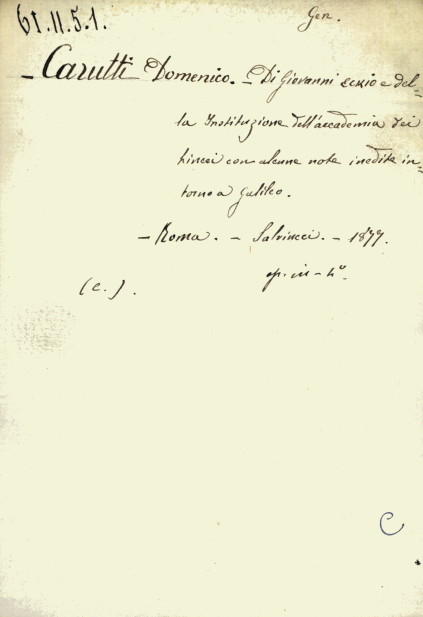 61.11.5.1.
Gen.
- Carutti Domenico. - Di Giovanni Eckio e del-
la Instituzione dell'accademia dei
Lincei con alcune note inedite in-
torno a Galileo.
- Roma. - Salviucci. - 1877.
op. in - 4º.
(C.).
C